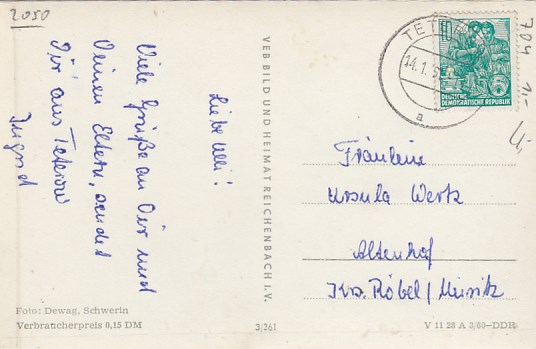 2050
Liebe Ulli!
Viele Grüße an Dir und
Deinen Eltern, sendet
Dir aus Teterow
VEB BILD UND HEIMAT REICHENBACH I. V.
TET
14.1.5
a
10
DEUTSCHE
DEMOKRATISCHE REPUBLIK
704
1,-
Fräulein
Ursula Werk
Altenhof
Krs. Röbel/Müritz
Foto: Dewag, Schwerin
Verbraucherpreis 0,15 DM
3/361
V 11 28 A 3/60-DDR